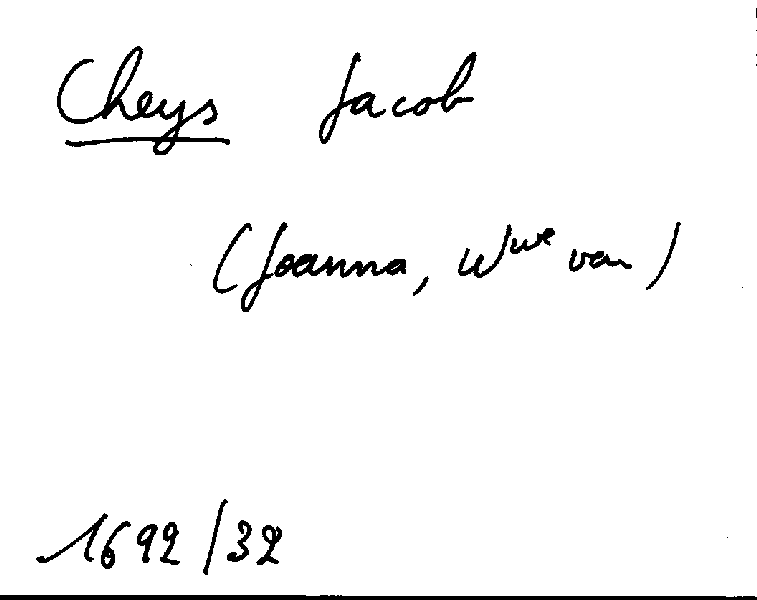 Cheys Jacob
(Joanna, Wwe van)
1692/32